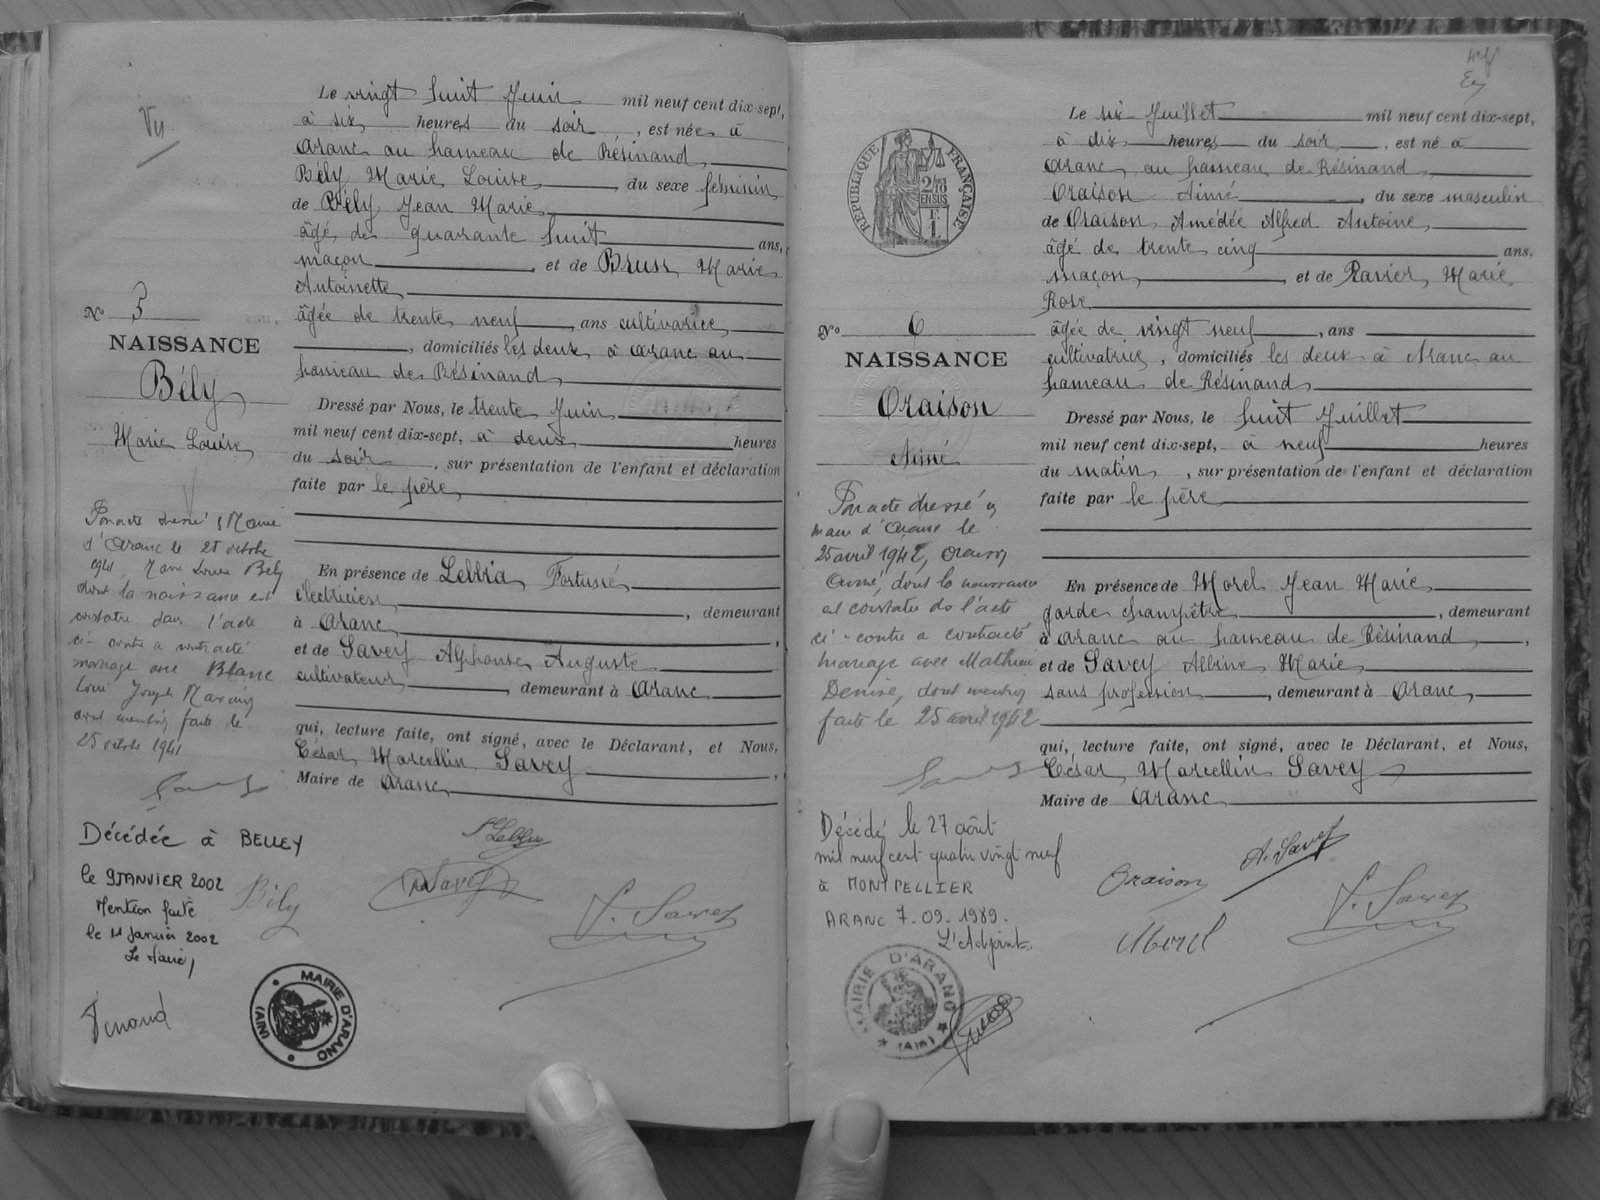 Vu
Le vingt huit Juin mil neuf cent dix-sept,
à six heures du soir, est née à
Aranc au hameau de Résinand,
Bély Marie Louise, du sexe féminin
de Bély Jean Marie,
âgé de quarante huit ans,
maçon, et de Brun Marie
Antoinette,
âgée de trente neuf ans cultivatrice,
, domiciliés les deux à Aranc au
hameau de Résinand,
Dressé par Nous, le trente Juin
mil neuf cent dix-sept, à deux heures
du soir, sur présentation de l'enfant et déclaration
faite par le père,
En présence de Lebbia Fortuné
électricien, demeurant
à Aranc,
et de Savey Alphonse Auguste
cultivateur, demeurant à Aranc,
qui, lecture faite, ont signé, avec le Déclarant, et Nous,
César Marcellin Savey,
Maire de Aranc
No 5
NAISSANCE
Bély
Marie Louise
Par acte dressé Mairie
d'Aranc le 25 octobre
1941, Marie Louise Bély
dont la naissance est
constatée dans l'acte
ci-contre a contracté
mariage avec Blanc
Louis Joseph
dont mention faite le
25 octobre 1941
Décédée à BELLEY
le 9 JANVIER 2002
Mention faite
le 11 Janvier 2002
Le Maire,
Bély
A Savey
Savey
MAIRIE D'ARANC
(AIN)
Le six Juillet mil neuf cent dix-sept,
à dix heures du soir, est né à
Aranc, au hameau de Résinand,
Oraison Aimé, du sexe masculin
de Oraison Amédée Alfred Antoine,
âgé de trente cinq ans,
maçon, et de Ravier Marie
Rose
âgée de vingt neuf, ans
cultivatrice, domiciliés les deux à Aranc au
hameau de Résinand,
Dressé par Nous, le huit Juillet
mil neuf cent dix-sept, à neuf heures
du matin, sur présentation de l'enfant et déclaration
faite par le père
En présence de Morel Jean Marie
garde champêtre, demeurant
à Aranc au hameau de Résinand,
et de Savey Albine Marie
sans profession, demeurant à Aranc,
qui, lecture faite, ont signé, avec le Déclarant, et Nous,
César Marcellin Savey
Maire de Aranc
RÉPUBLIQUE FRANÇAISE
2/10
EN SUS
1 F.
No 6
NAISSANCE
Oraison
Aimé
Par acte dressé en
mairie d'Aranc le
25 avril 1942, Oraison
Aimé, dont la naissance
est constatée de l'acte
ci-contre a contracté
mariage avec Mathieu
Denise, dont mention
faite le 25 avril 1942
Décédé le 27 août
mil neuf cent quatre vingt neuf
à MONTPELLIER
ARANC 7-09-1989.
L'Adjoint.
Oraison
A. Savey
Morel
Savey
MAIRIE D'ARANC
(Ain)